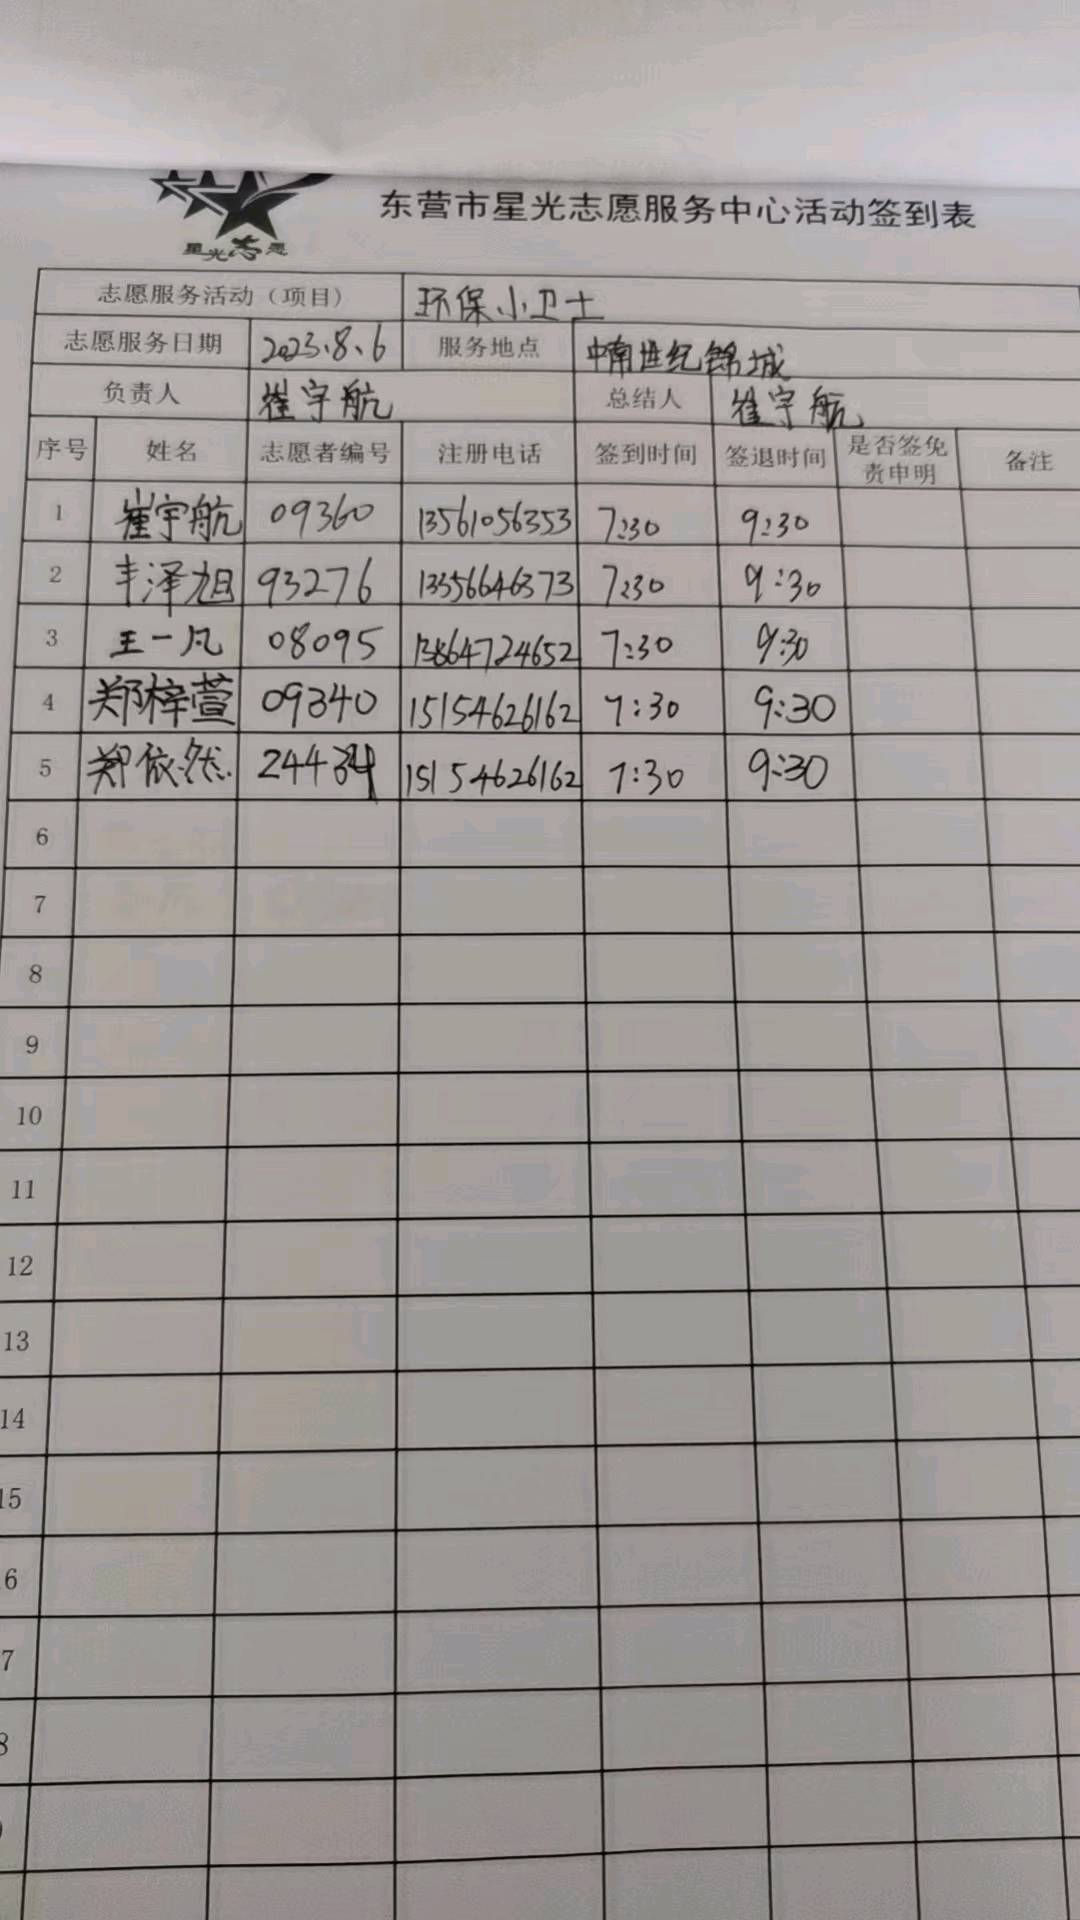 东营市星光志愿服务中心活动签到表
星光志愿
志愿服务活动（项目） 环保小卫士
志愿服务日期 2023.8.6 服务地点 中南世纪锦城
负责人 崔宇航 总结人 崔宇航
序号 姓名 志愿者编号 注册电话 签到时间 签退时间 是否签免责申明 备注
1 崔宇航 09360 13561056353 7:30 9:30
2 丰泽旭 93276 13356646373 7:30 9:30
3 王一凡 08095 13864724652 7:30 9:30
4 郑梓萱 09340 15154626162 7:30 9:30
5 郑依然 15154626162 7:30 9:30
6
7
8
9
10
11
12
13
14
15